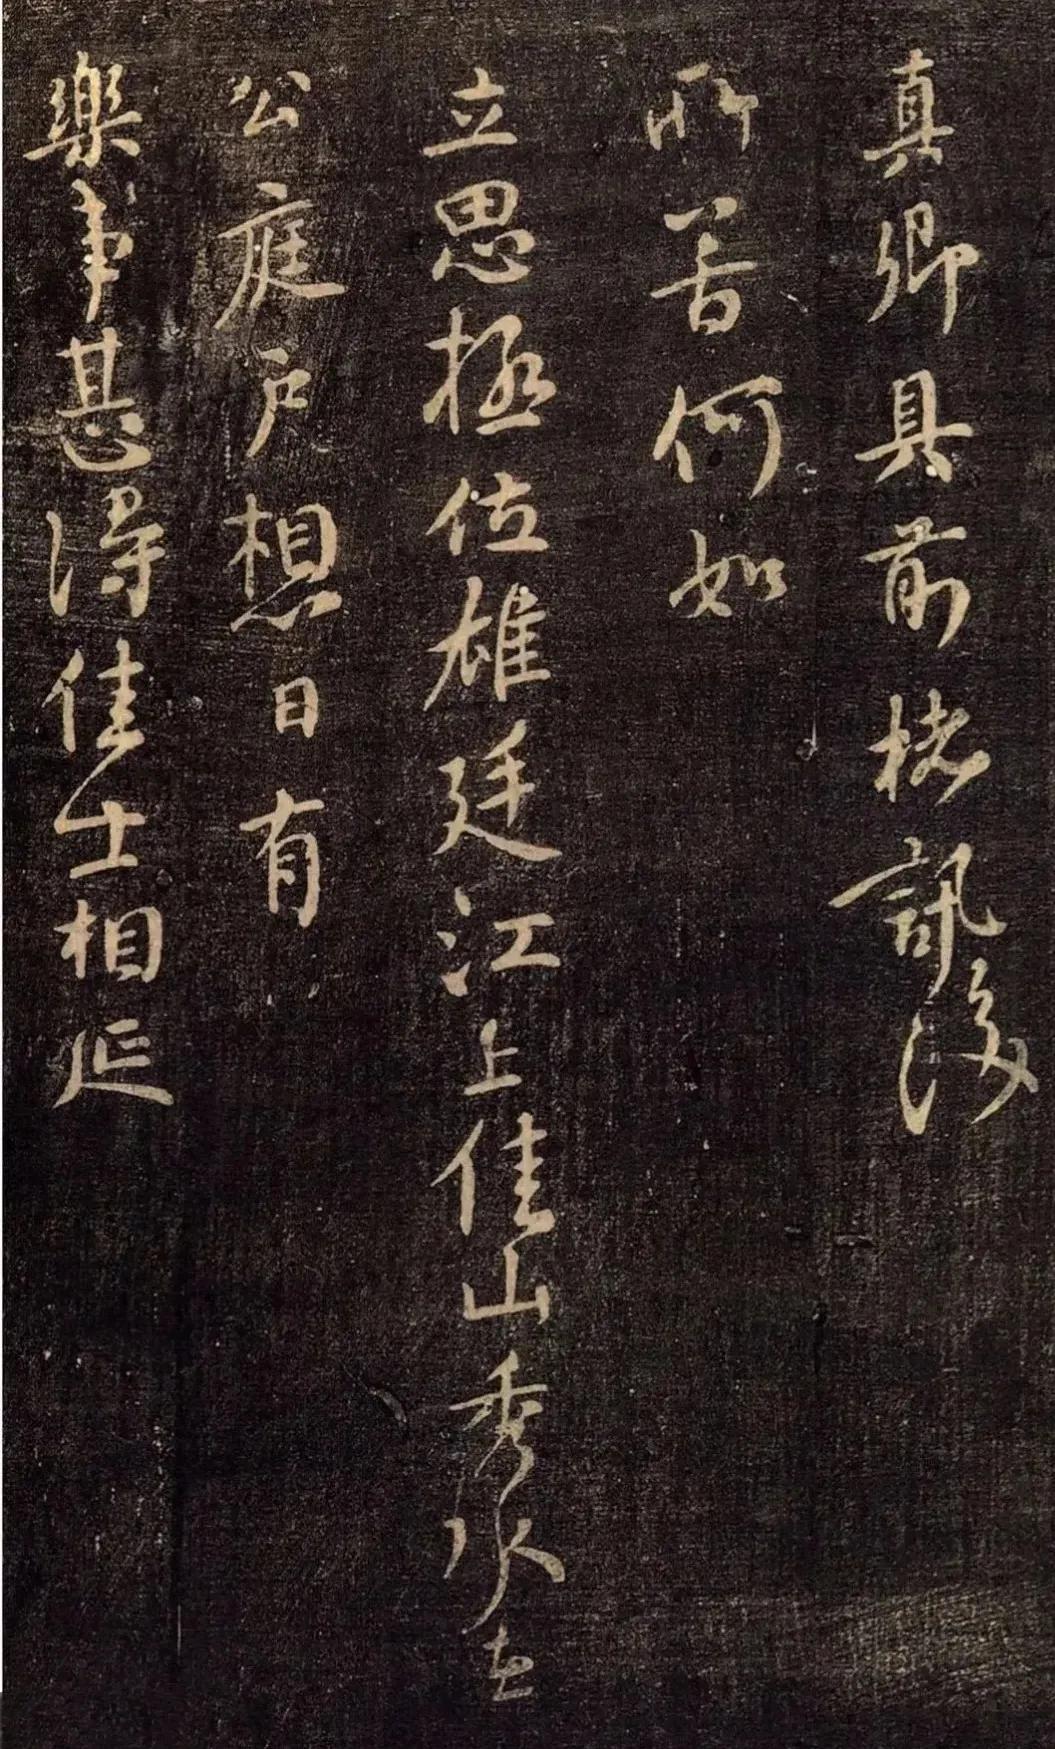 真卿具前楮訊後
所苦何如
立思拯位雄廷江上佳山秀水在
公庭户想日有
樂事甚得佳士相延